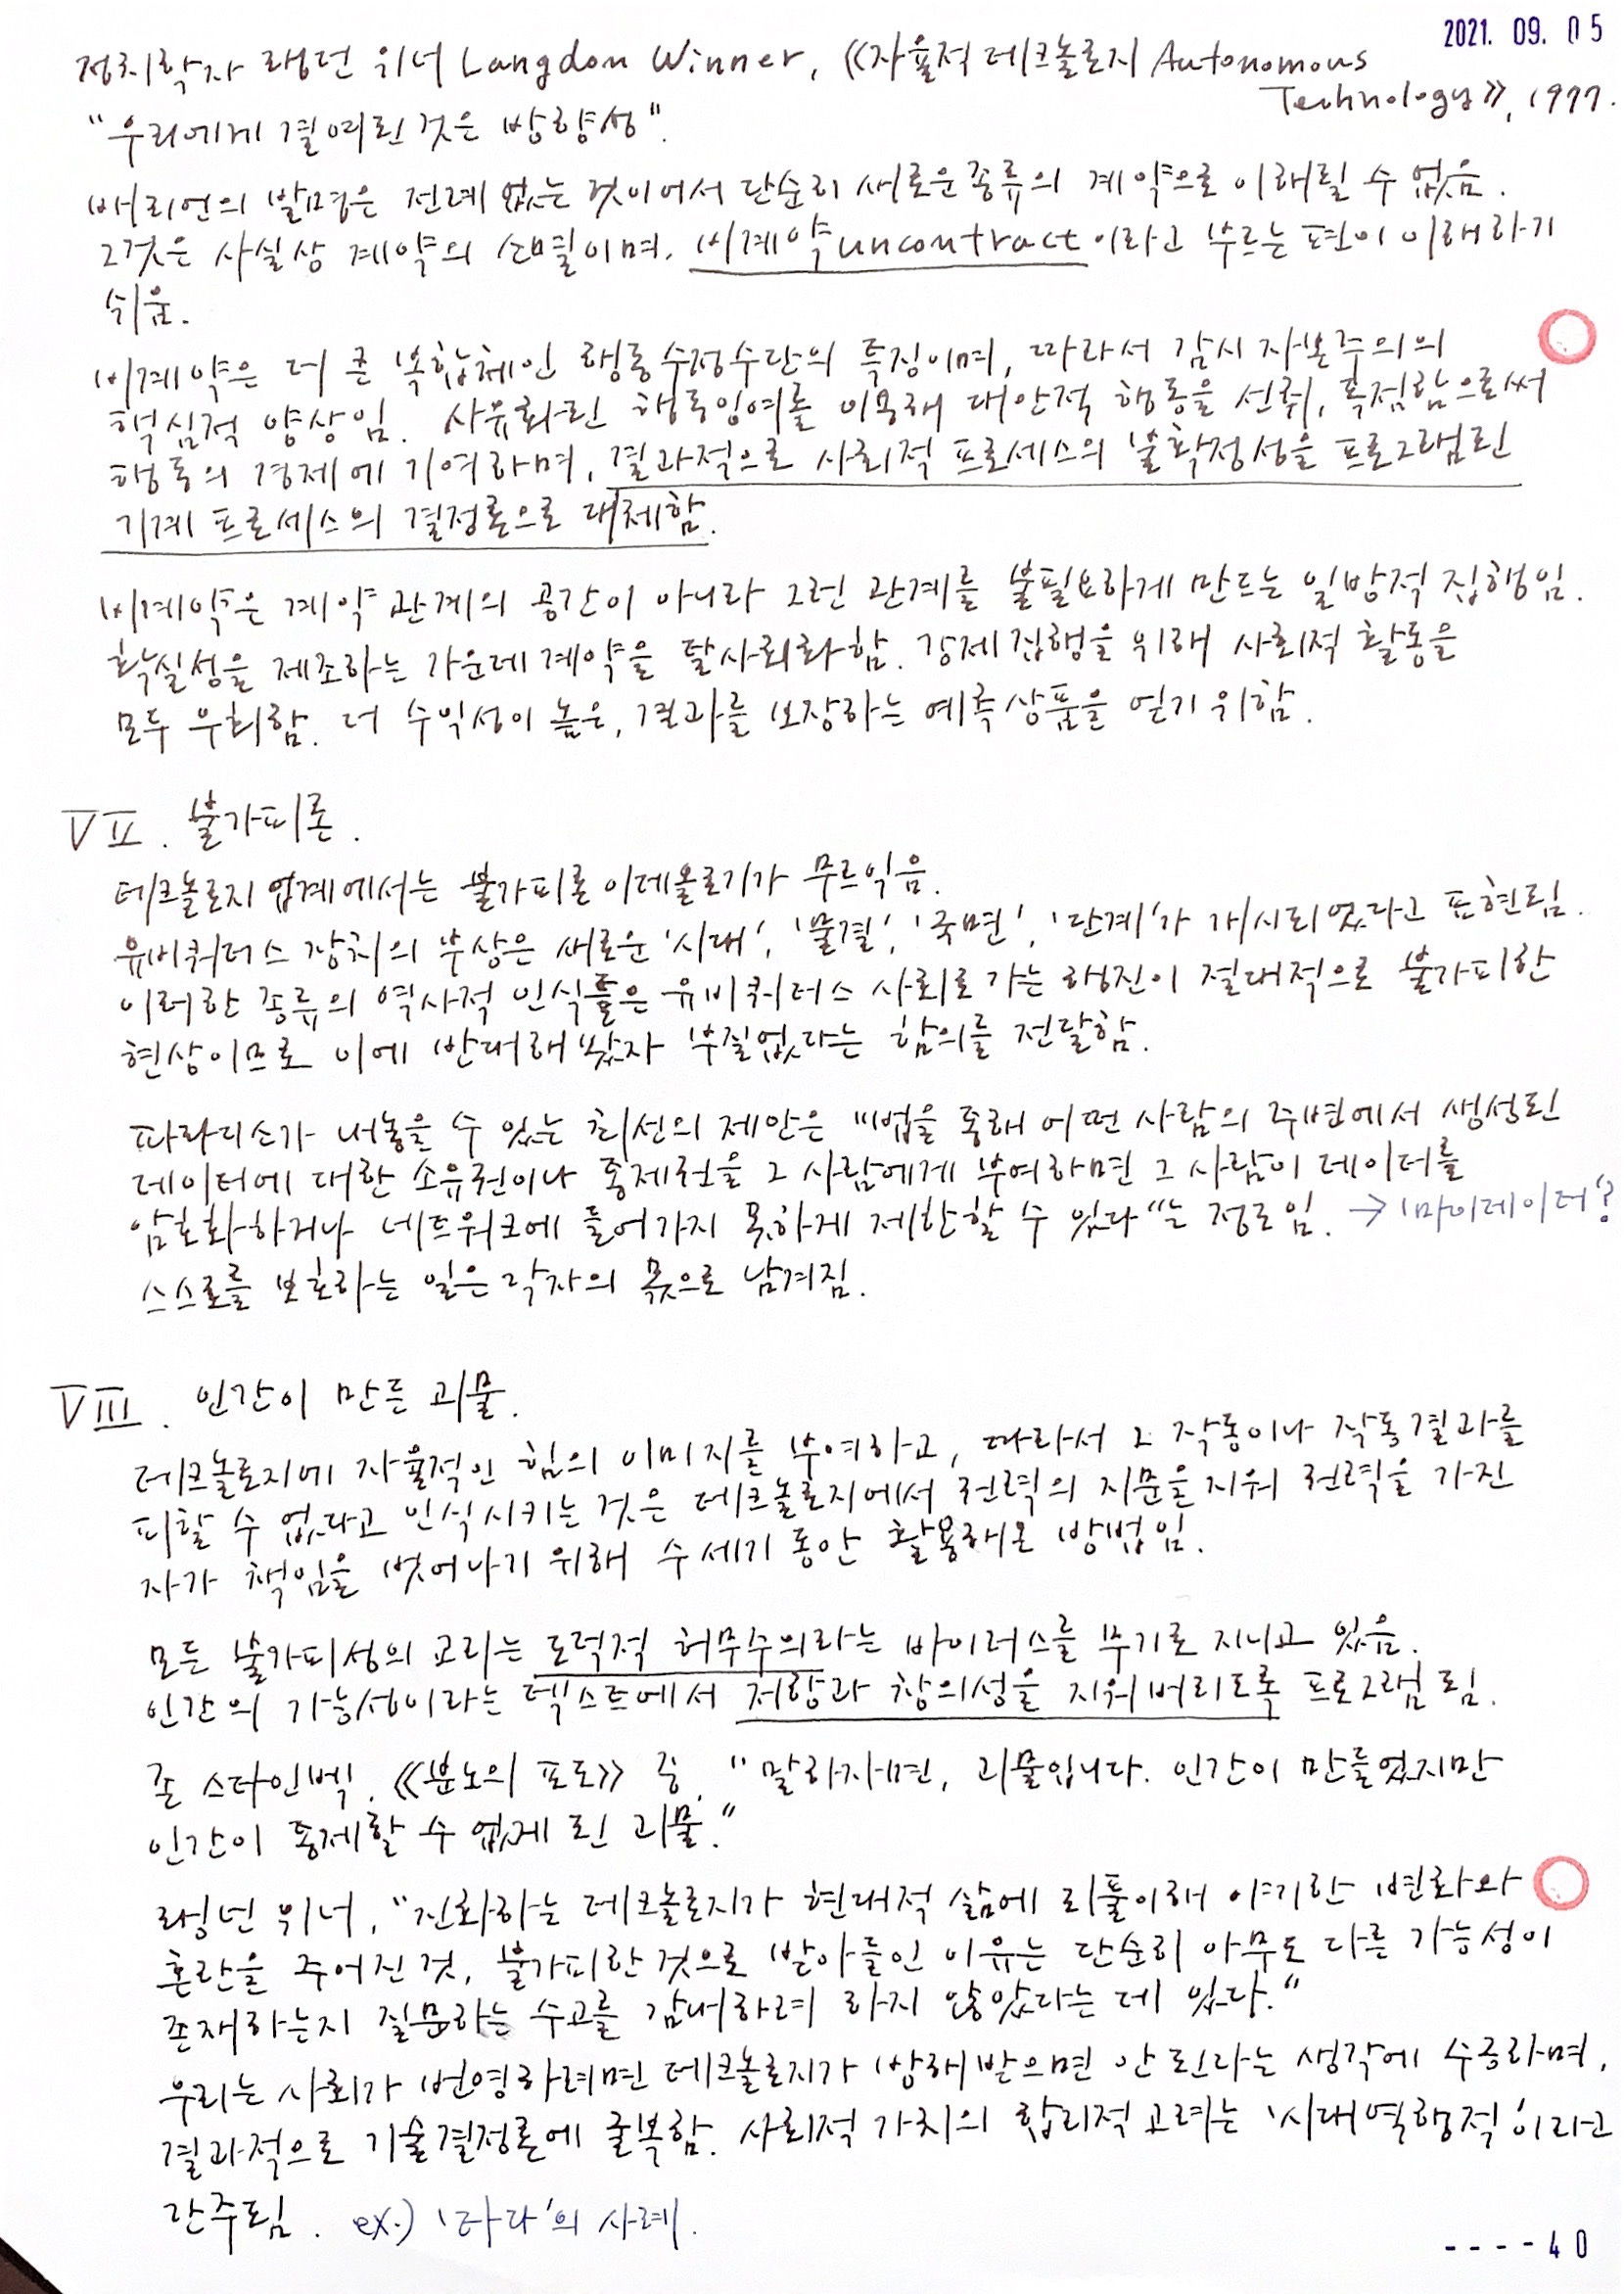 2021. 09. 05
정치학자 랭던 위너 Langdon Winner, 《자율적 테크놀로지 Autonomous
Technology》, 1977.
"우리에게 결여된 것은 방향성".
배리언의 발명은 전례 없는 것이어서 단순히 새로운 종류의 계약으로 이해될 수 없음.
그것은 사실상 계약의 말이며, 비계약 uncontract 이라고 부르는 편이 이해하기
쉬움.
비계약은 더 큰 복합체인 행동수정수단의 특징이며, 따라서 감시 자본주의의
핵심적 양상임. 사유화된 행동잉여를 이용해 대안적 행동을 선취, 독점함으로써
행동의 경제에 기여하며, 결과적으로 사회적 프로세스의 불확정성을 프로그램된
기계 프로세스의 결정론으로 대체함.
비계약은 계약 관계의 공간이 아니라 그런 관계를 불필요하게 만드는 일방적 집행임.
확실성을 제조하는 가운데 계약을 탈사회화함. 강제 집행을 위해 사회적 활동을
모두 우회함. 더 수익성이 높은, 결과를 보장하는 예측상품을 얻기 위함.
VII. 불가피론.
테크놀로지 업계에서는 불가피론 이데올로기가 무르익음.
유비쿼터스 장치의 부상은 새로운 '시대', '물결', '국면', '단계'가 개시되었다고 표현됨.
이러한 종류의 역사적 인식들은 유비쿼터스 사회로 가는 행진이 절대적으로 불가피한
현상이므로 이에 반대해봤자 부질없다는 함의를 전달함.
파라디소가 내놓을 수 있는 최선의 제안은 "법을 통해 어떤 사람의 주변에서 생성된
데이터에 대한 소유권이나 통제권을 그 사람에게 부여하면 그 사람이 데이터를
암호화하거나 네트워크에 들어가지 못하게 제한할 수 있다"는 정도임. → '마이데이터'?
스스로를 보호하는 일은 각자의 몫으로 남겨짐.
VIII. 인간이 만든 괴물.
테크놀로지에 자율적인 힘의 이미지를 부여하고, 따라서 그 작동이나 작동 결과를
피할 수 없다고 인식시키는 것은 테크놀로지에서 권력의 지문을 지워 권력을 가진
자가 책임을 벗어나기 위해 수 세기 동안 활용해온 방법임.
모든 불가피성의 교리는 도덕적 허무주의라는 바이러스를 무기로 지니고 있음.
인간의 가능성이라는 텍스트에서 저항과 창의성을 지워버리도록 프로그램 됨.
존 스타인벡, 《분노의 포도》 중, "말하자면, 괴물입니다. 인간이 만들었지만
인간이 통제할 수 없게 된 괴물."
랭던 위너, "진화하는 테크놀로지가 현대적 삶에 되풀이해 야기한 변화와
혼란을 주어진 것, 불가피한 것으로 받아들인 이유는 단순히 아무도 다른 가능성이
존재하는지 질문하는 수고를 감내하려 하지 않았다는 데 있다."
우리는 사회가 번영하려면 테크놀로지가 방해받으면 안 된다는 생각에 수긍하며,
결과적으로 기술결정론에 굴복함. 사회적 가치의 합리적 고려는 '시대역행적'이라고
간주됨. ex.) '타다'의 사례.
----40